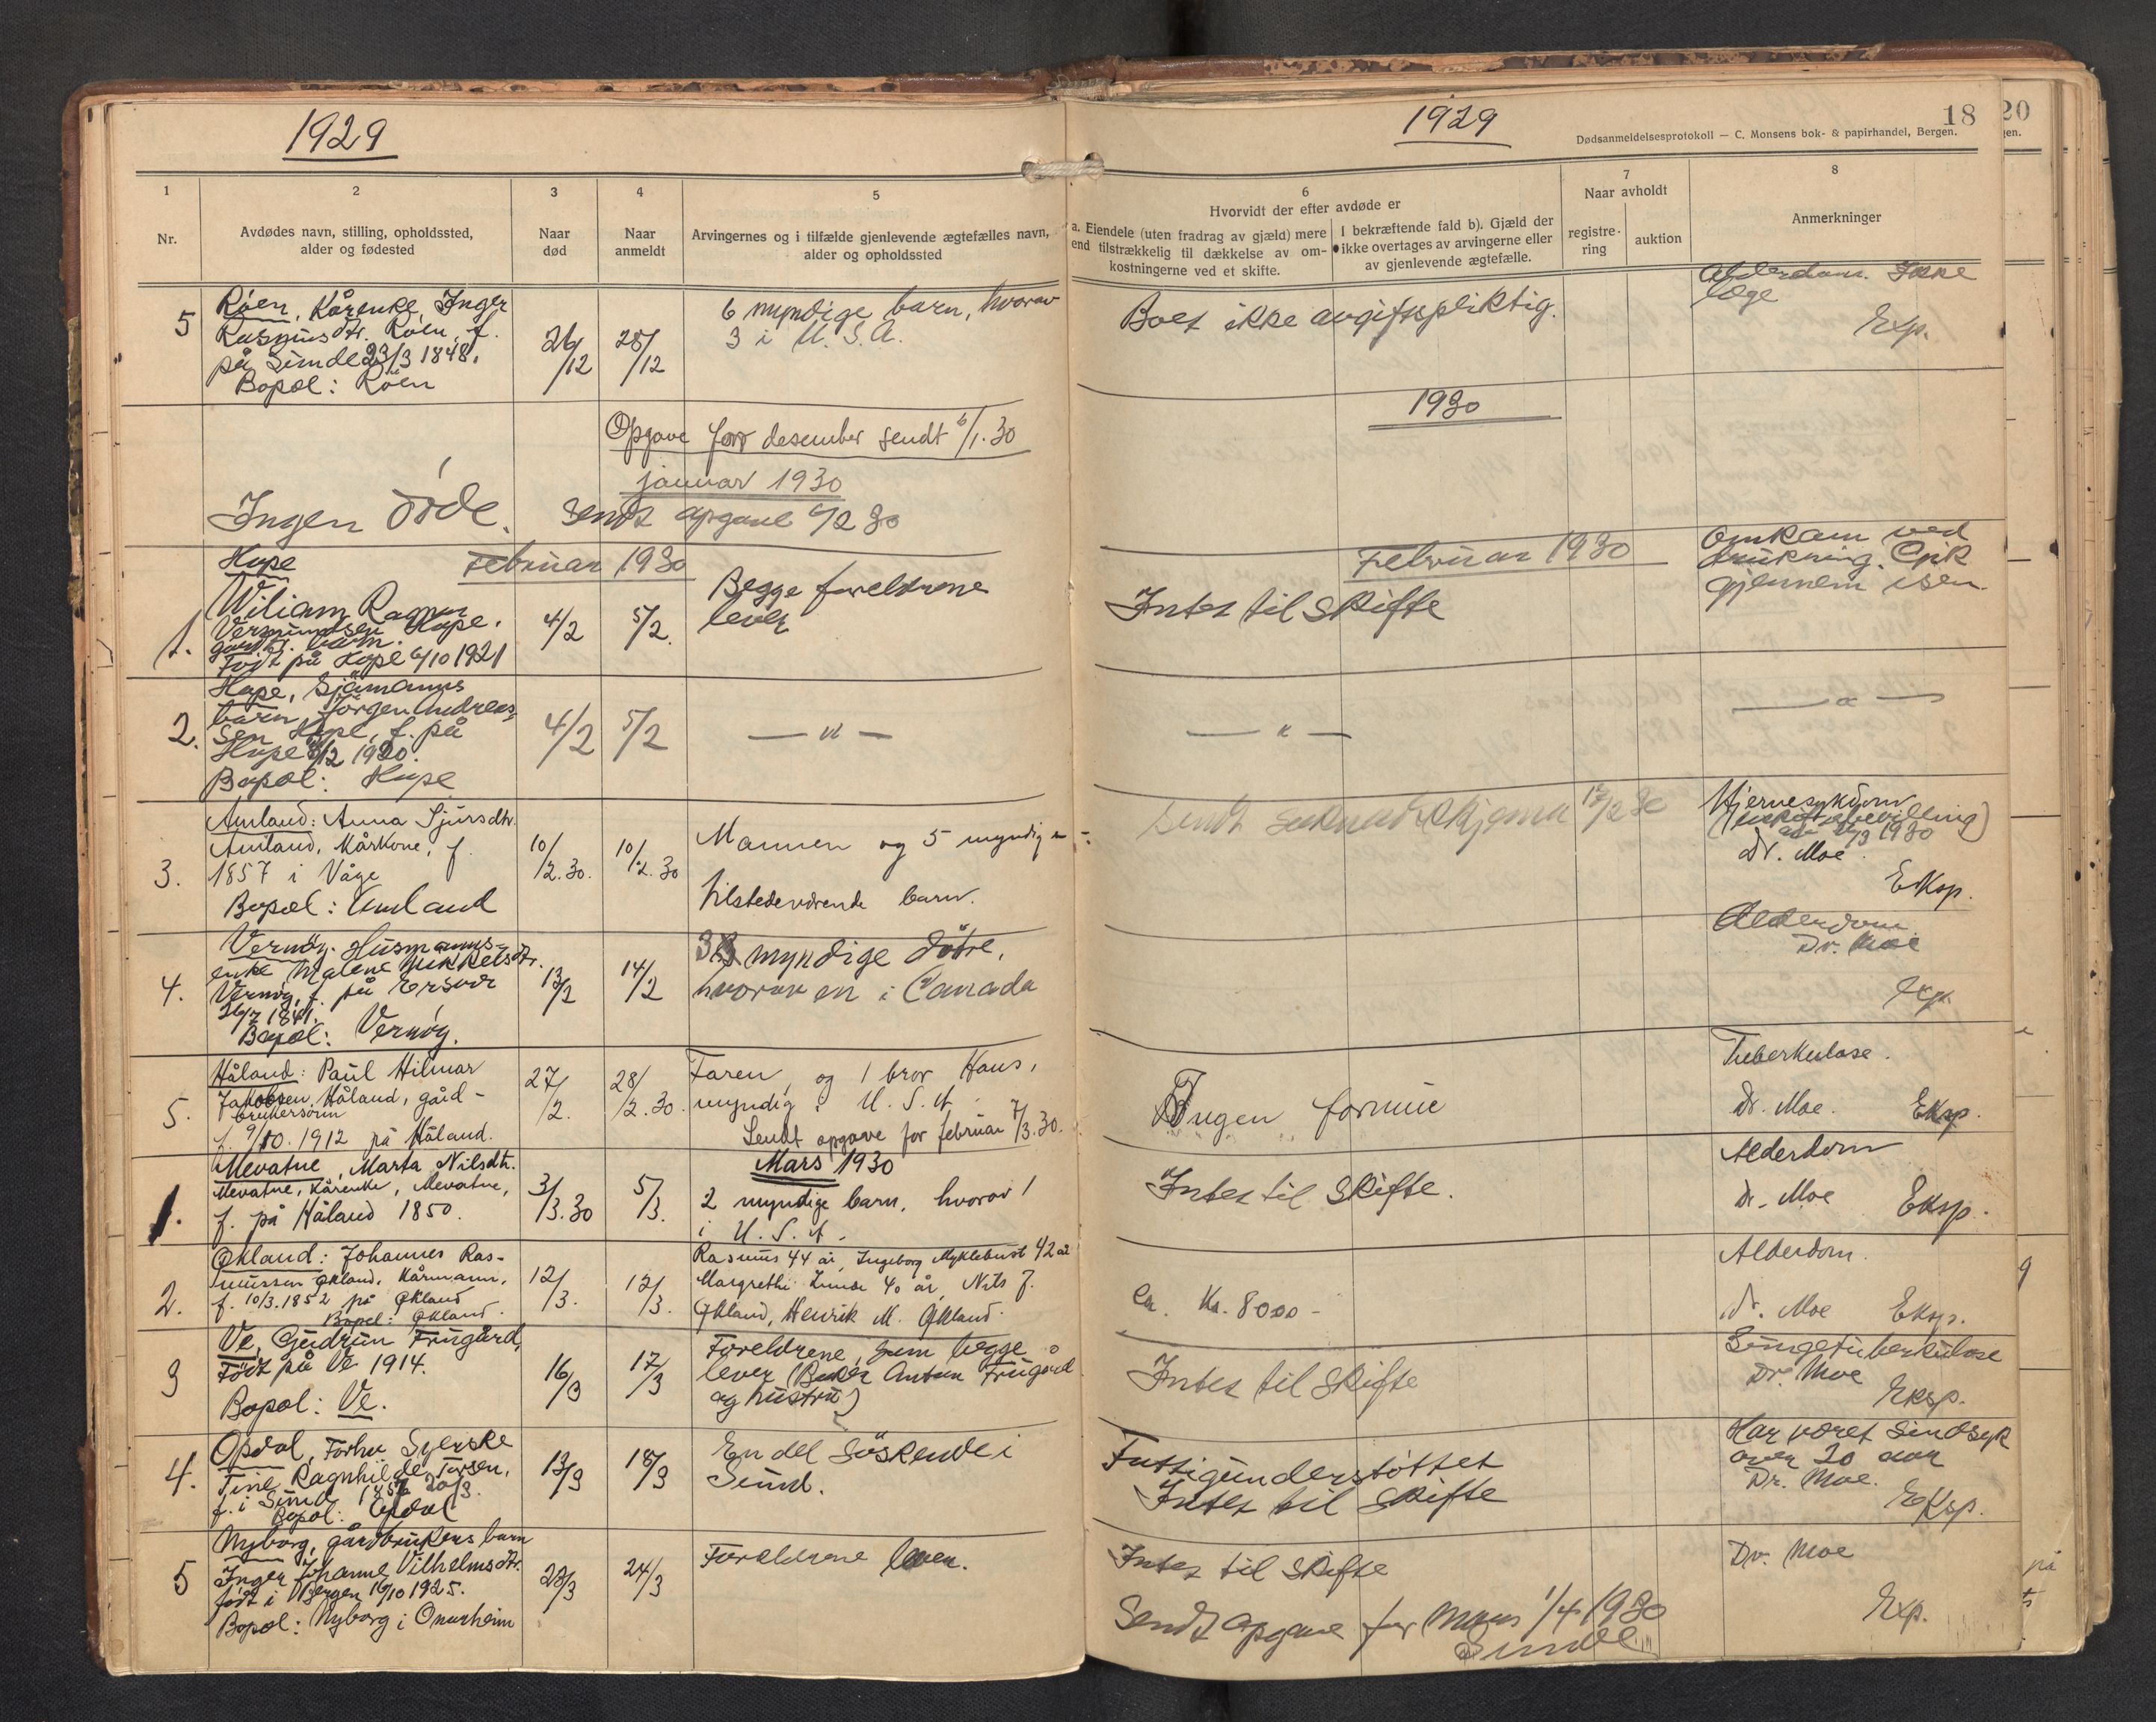 1929
1
2
3
4
5
Nr.
Avdødes navn, stilling, opholdssted,
alder og fødested
Naar
død
Naar
anmeldt
Arvingernes og i tilfælde gjenlevende ægtefælles navn,
alder og opholdssted
1929
18
20
Dødsanmeldelsesprotokoll — C. Monsens bok- & papirhandel, Bergen.
gen.
6
Hvorvidt der efter avdøde er
a. Eiendele (uten fradrag av gjæld) mere
end tilstrækkelig til dækkelse av om-
kostningerne ved et skifte.
I bekræftende fald b). Gjæld der
ikke overtages av arvingerne eller
av gjenlevende ægtefælle.
7
Naar avholdt
registre-
ring
auktion
8
Anmerkninger
5
Röen, Kårenke, Inger
Rasmusdtr. Röen, f.
på Sunde 23/3 1848.
Bopæl: Röen
26/12
28/12
6 myndige barn, hvorav
3 i U.S.A.
Boet ikke avgiftspliktig.
Alderdom. Ikke
læge
Exp.
Opgave for desember sendt 6/1.30
1930
januar 1930
Ingen döde. Sendt opgave 6/2 30
Februar 1930
Februar 1930
1.
Hope
Wiliam Ragnar
Vermundsen Hope,
gardbr. barn.
Födt på Hope 6/10 1921
4/2
5/2.
Begge foreldrene
lever
Intet til skifte
Omkom ved
drukning. Gik
gjennem isen.
2.
Hope, Sjömanns
barn, Jörgen Andreas-
sen Hope, f. på
Hope /12 1920.
Bopæl: Hope
4/2
5/2
— " —
— " —
— " —
3.
Amland: Anna Sjursdtr.
Amland, Kårkone, f.
1857 i Våge
Bopæl: Amland
10/2.30.
10/2.30
Mannen og 5 myndige
tilstedeværende barn.
Sendt skjema 17/2 30
Hjernesykdom
1930
Dr. Moe.
Eksp.
4.
Vernöy. Husmanns-
enke Malene Mikkelsdtr.
Vernöy, f. på Ersvær
26/7 1841.
Bopæl: Vernöy.
13/2
14/2
3 myndige døtre,
hvorav en i Canada
Alderdom
Dr. Moe
Exp.
5.
Håland: Paul Hilmar
Jakobsen Håland, gård-
brukersønn
f. 9/10. 1912 på Håland.
27/2.
28/2.30.
Faren, og 1 bror Hans,
myndig i U.S.A.
Sendt opgave for februar 7/3.30.
Ingen formue
Tuberkulose.
Dr. Moe.
Eksp.
Mars 1930
1.
Mevatne, Marta Nilsdtr.
Mevatne, Kårenke, Mevatne,
f. på Håland 1850.
3/3.30
5/3.
2 myndige barn, hvorav 1
i U.S.A.
Intet til skifte.
Alderdom
Dr. Moe
Eksp.
2.
Økland: Johannes Ras-
mussen Økland, Kårmann,
f. 10/3.1852 på Økland
Bopæl: Økland.
12/3.
12/3.
Rasmus 44 år, Ingeborg Myklebust 42 år
Margrethe Lunde 40 år, Nils J.
Økland, Henrik M. Økland.
ca. Kr. 8000 -
Alderdom.
Dr. Moe
Eksp.
3
Ve, Gudrun Frugård,
Födt på Ve 1914.
Bopæl: Ve.
16/3
17/3
Foreldrene, som begge
lever (Baker Anton Frugård
og hustru)
Intet til skifte
Lungetuberkulose
Dr. Moe
Eksp.
4.
Opdal, Forhv. Syerske
Tine Ragnhilde Torsen,
f. i Sund 185 20/3.
Bopæl: Opdal
13/3
18/3
En del söskende i
Sund.
Fattigunderstöttet
Intet til skifte
Har været Sindsyk
over 20 aar
Dr. Moe.
Eksp.
5
Nyborg, gårdbrukers barn
Inger Johanne Vilhelmsdtr.
födt i Bergen 16/10 1925.
Bopæl: Nyborg i Onarheim
23/3
24/3
Foreldrene lever.
Intet til skifte
Dr. Moe
Exp.
Sendt opgave for Mars 1/4 1930
Sunde
på